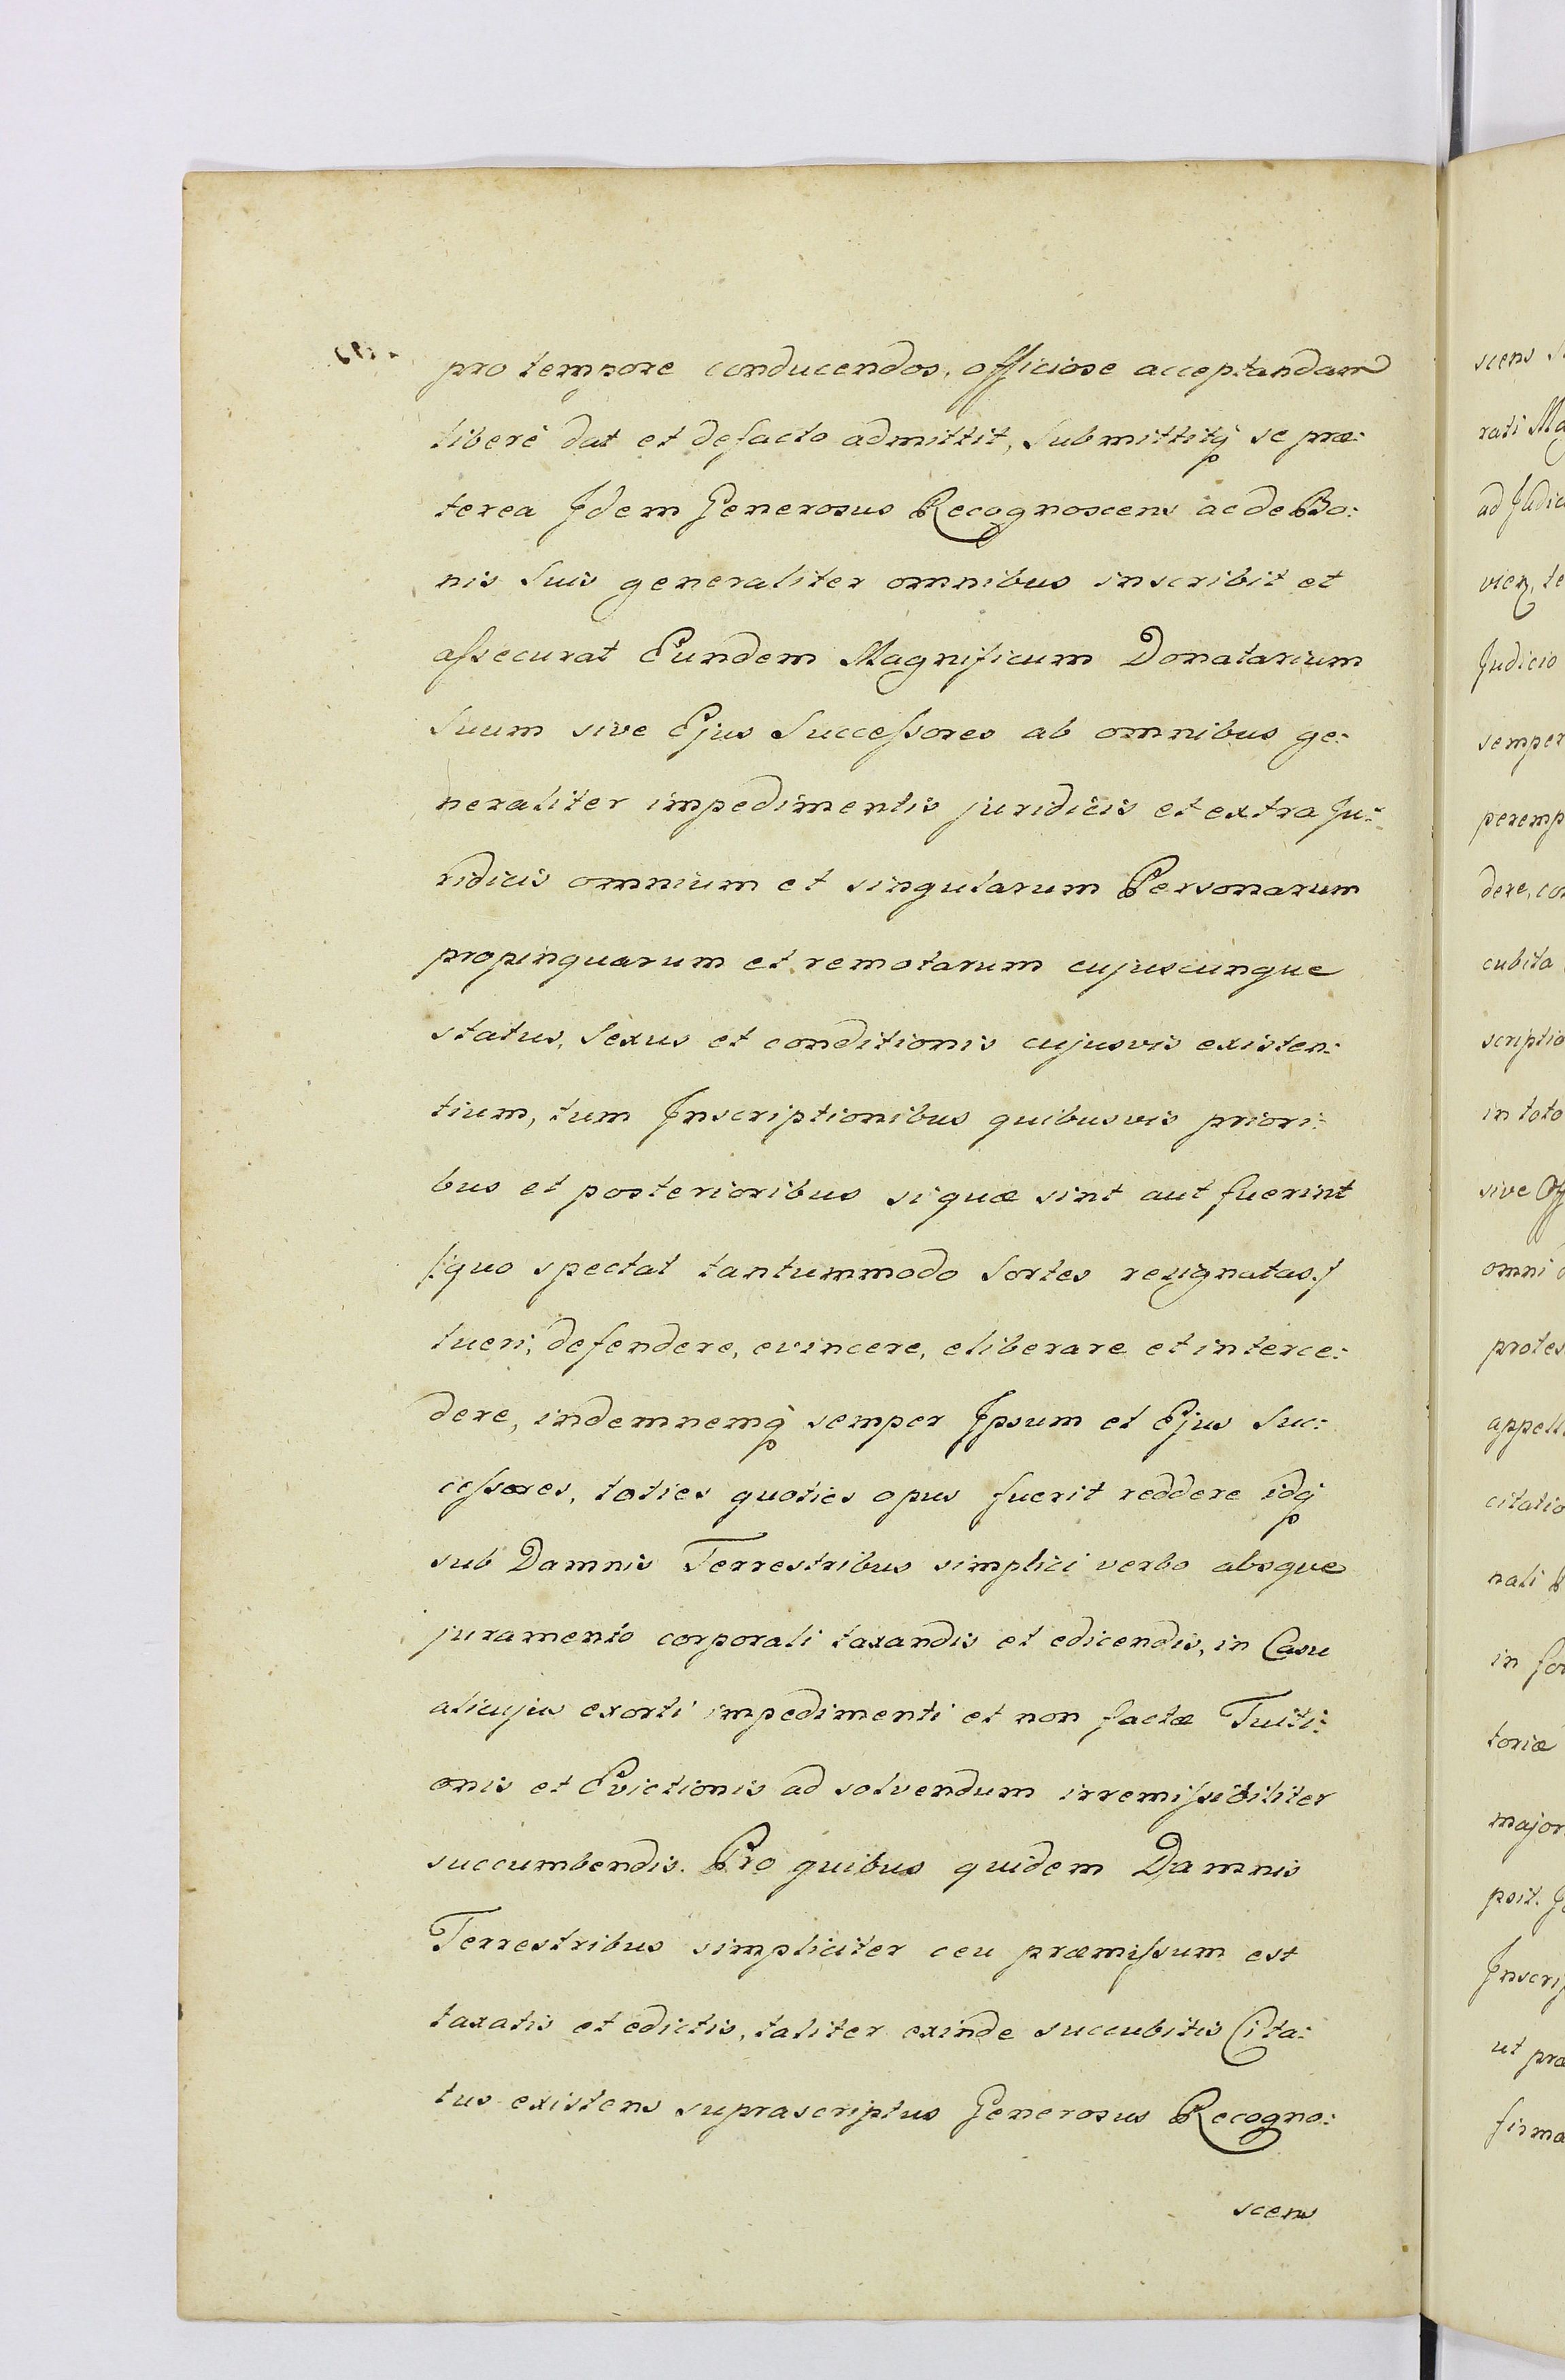 pro tempore conducendos, officiose acceptandam
liberè dat et defacto admittit, Submittitq́ se præ:
terea Idem Generosus Recognoscens ac de Bo:
nis Suis generaliter omnibus inscribit et
aſsecurat Eundem Magnificum Donatarium
Suum sive Ejus Succeſsores ab omnibus ge:
neraliter impedimentis juridicis et extra Ju:
ridicis omnium et singularum Personarum
propinquarum et remotarum cujuscunque
status, Sexus et conditionis cujusvis existen:
tium, tum Inscriptionibus quibusvis priori:
bus et posterioribus siquæ sint aut fuerint
/:quo spectat tantummodo Sortes resignatas:/
tueri, defendere, evincere, eliberare et interce:
dere, indemnemq́ semper Ipsum et Ejus Suc:
ceſsores, toties quoties opus fuerit reddere idq́
sub Damnis Terrestribus simplici verbo absque
juramento corporali taxandis et edicendis, in Casu
alicujus exorti impedimenti et non factæ Tuiti:
onis et Evictionis ad solvendum irremiſsibiliter
succumbendis. Pro quibus quidem Damnis
Terrestribus simpliciter ceu præmiſsum est
taxatis et edictis, taliter exinde succubitis Cita:
tus existens suprascriptus Generosus Recogno:
scens
scens
rati
ad
Judicio
semper
peremp
dere,
cubita
scriptio
in toto
sive
omni
protes
appell
citatio
nali
in for
toriæ
major
psit.
Inscrip
ut præ
firma